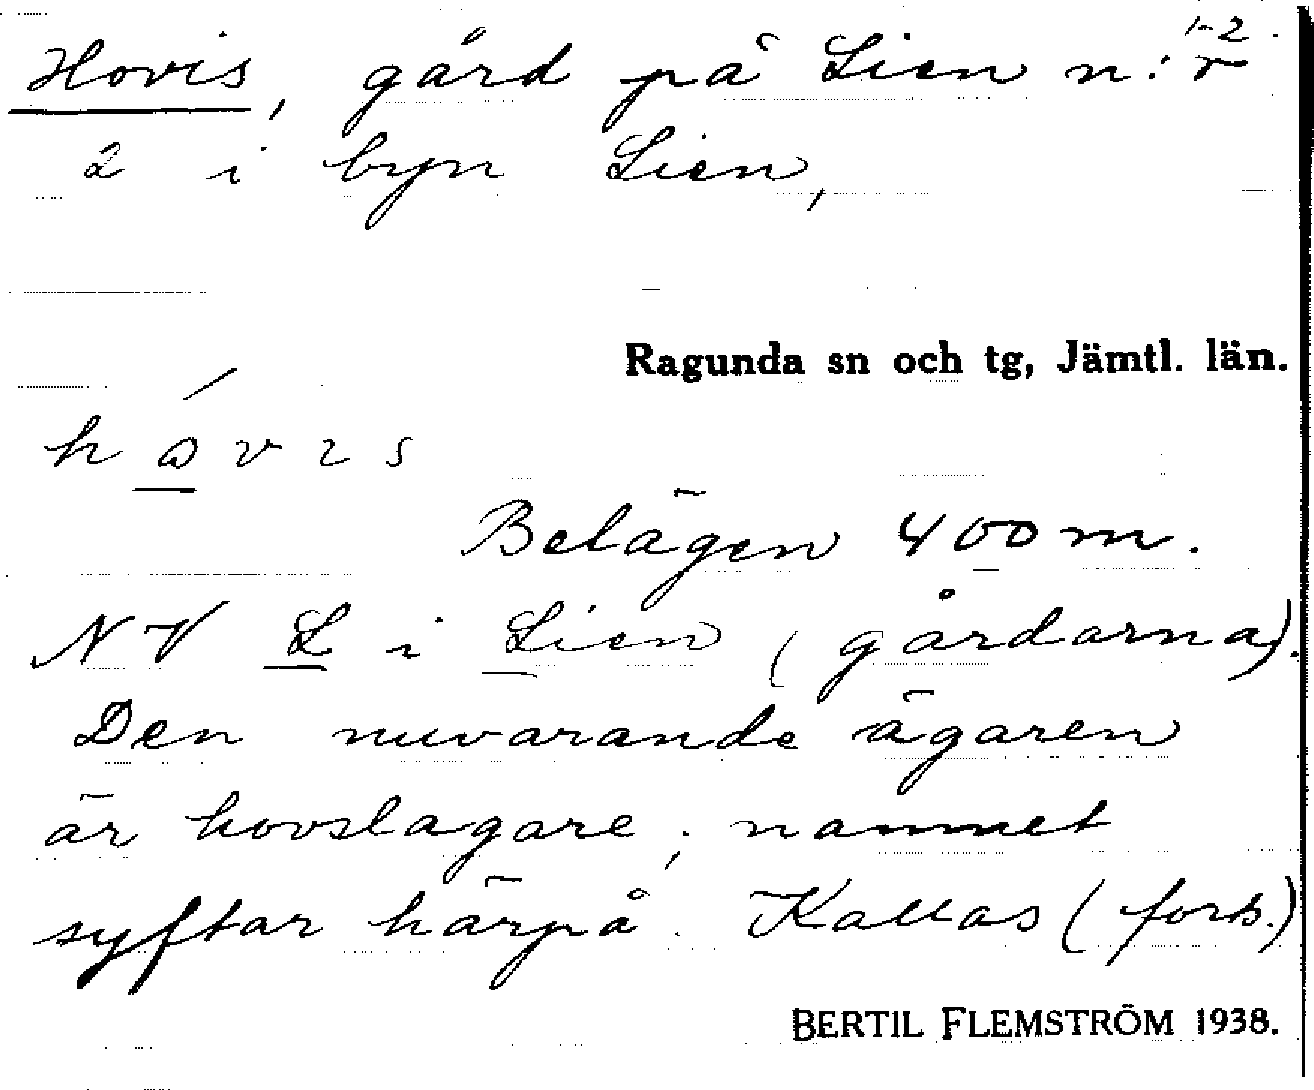 1-2.
Hovis, gård på Lien n:r
2 i byn Lien,
Ragunda sn och tg, Jämtl. län.
Belägen 400 m.
NV L i Lien (gårdarna).
Den nuvarande ägaren
är hovslagare; namnet
syftar härpå. Kallas (forts.)
BERTIL FLEMSTRÖM 1938.